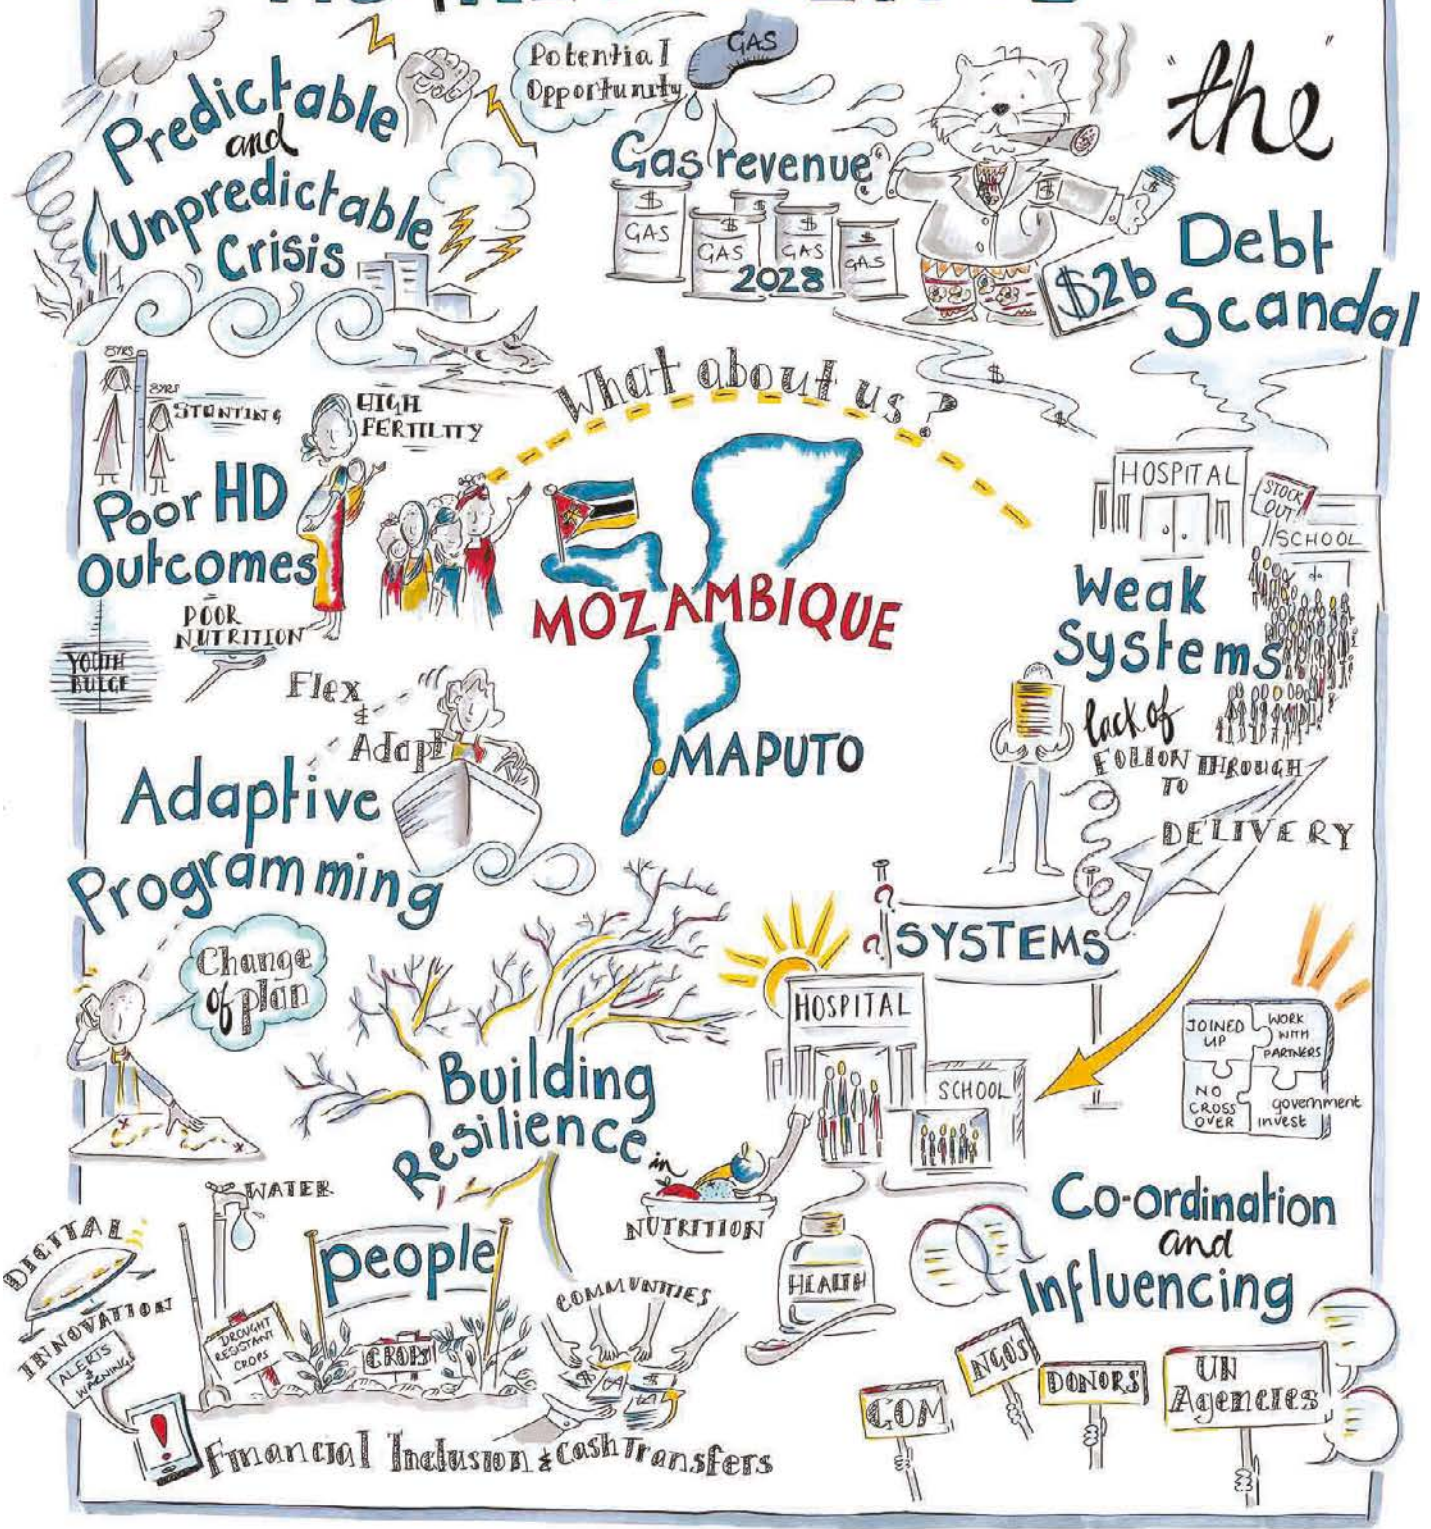 Predictable
and
Unpredictable
Crisis
Potential
Opportunity
GAS
Gas revenue
$
GAS
$
GAS
$
$
GAS
$
GAS
2028
$
$
"the"
$2b
Debt
Scandal
$
$
What about us?
8YRS
STUNTING
HIGH
FERTILITY
Poor HD
Outcomes
POOR
NUTRITION
YOUTH
BULGE
MOZAMBIQUE
MAPUTO
HOSPITAL
STOCK
OUT
SCHOOL
Weak
Systems
lack of
FOLLOW THROUGH
TO
DELIVERY
Flex
&
Adapt
Adaptive
Programming
Change
of plan
SYSTEMS
HOSPITAL
SCHOOL
JOINED
UP
WORK
WITH
PARTNERS
NO
CROSS
OVER
government
invest
Building
Resilience
in
NUTRITION
HEALTH
WATER
people
DIGITAL
INNOVATION
ALERTS
&
WARNINGS
!
DROUGHT
RESISTANT
CROPS
CROPS
COMMUNITIES
$
$
Financial Inclusion & Cash Transfers
Co-ordination
and
Influencing
GOM
NGO'S
DONORS
UN
Agencies